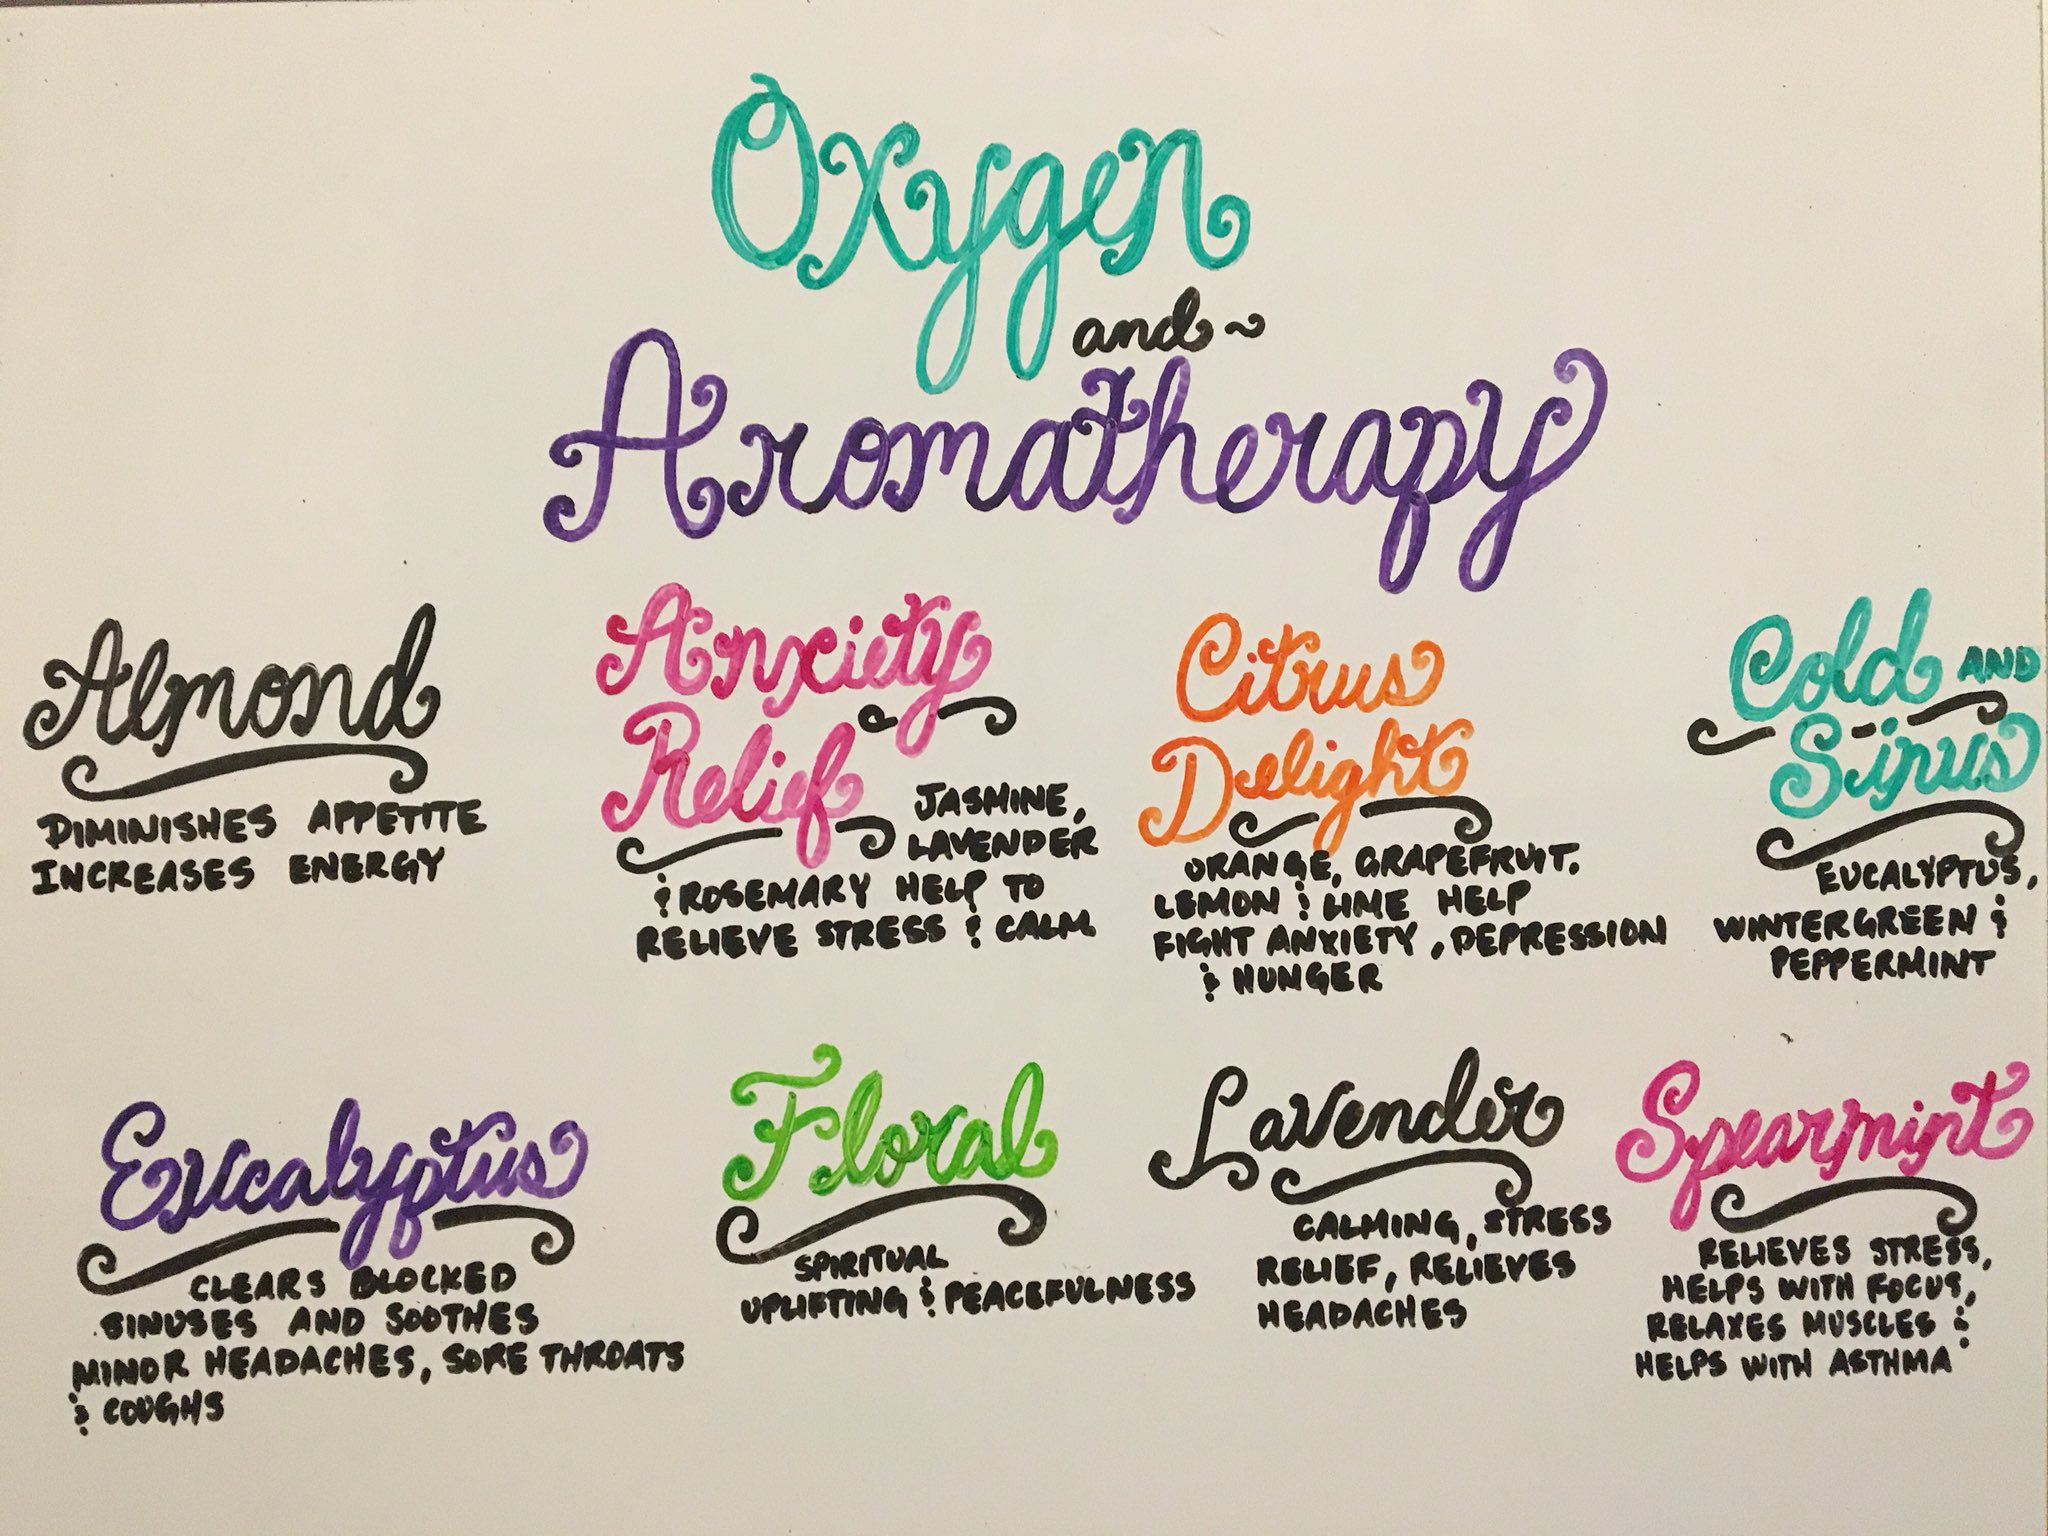 Oxygen
and~
Aromatherapy
Almond
DIMINISHES APPETITE
INCREASES ENERGY
Anxiety
Relief
JASMINE,
LAVENDER
& ROSEMARY HELP TO
RELIEVE STRESS & CALM.
Citrus
Delight
ORANGE, GRAPEFRUIT.
LEMON & LIME HELP
FIGHT ANXIETY, DEPRESSION
& HUNGER
Cold AND
Sinus
EUCALYPTUS,
WINTERGREEN &
PEPPERMINT
Eucalyptus
CLEARS BLOCKED
SINUSES AND SOOTHES
MINOR HEADACHES, SORE THROATS
& COUGHS
Floral
SPIRITUAL
UPLIFTING & PEACEFULNESS
Lavender
CALMING, STRESS
RELIEF, RELIEVES
HEADACHES
Spearmint
RELIEVES STRESS,
HELPS WITH FOCUS,
RELAXES MUSCLES &
HELPS WITH ASTHMA